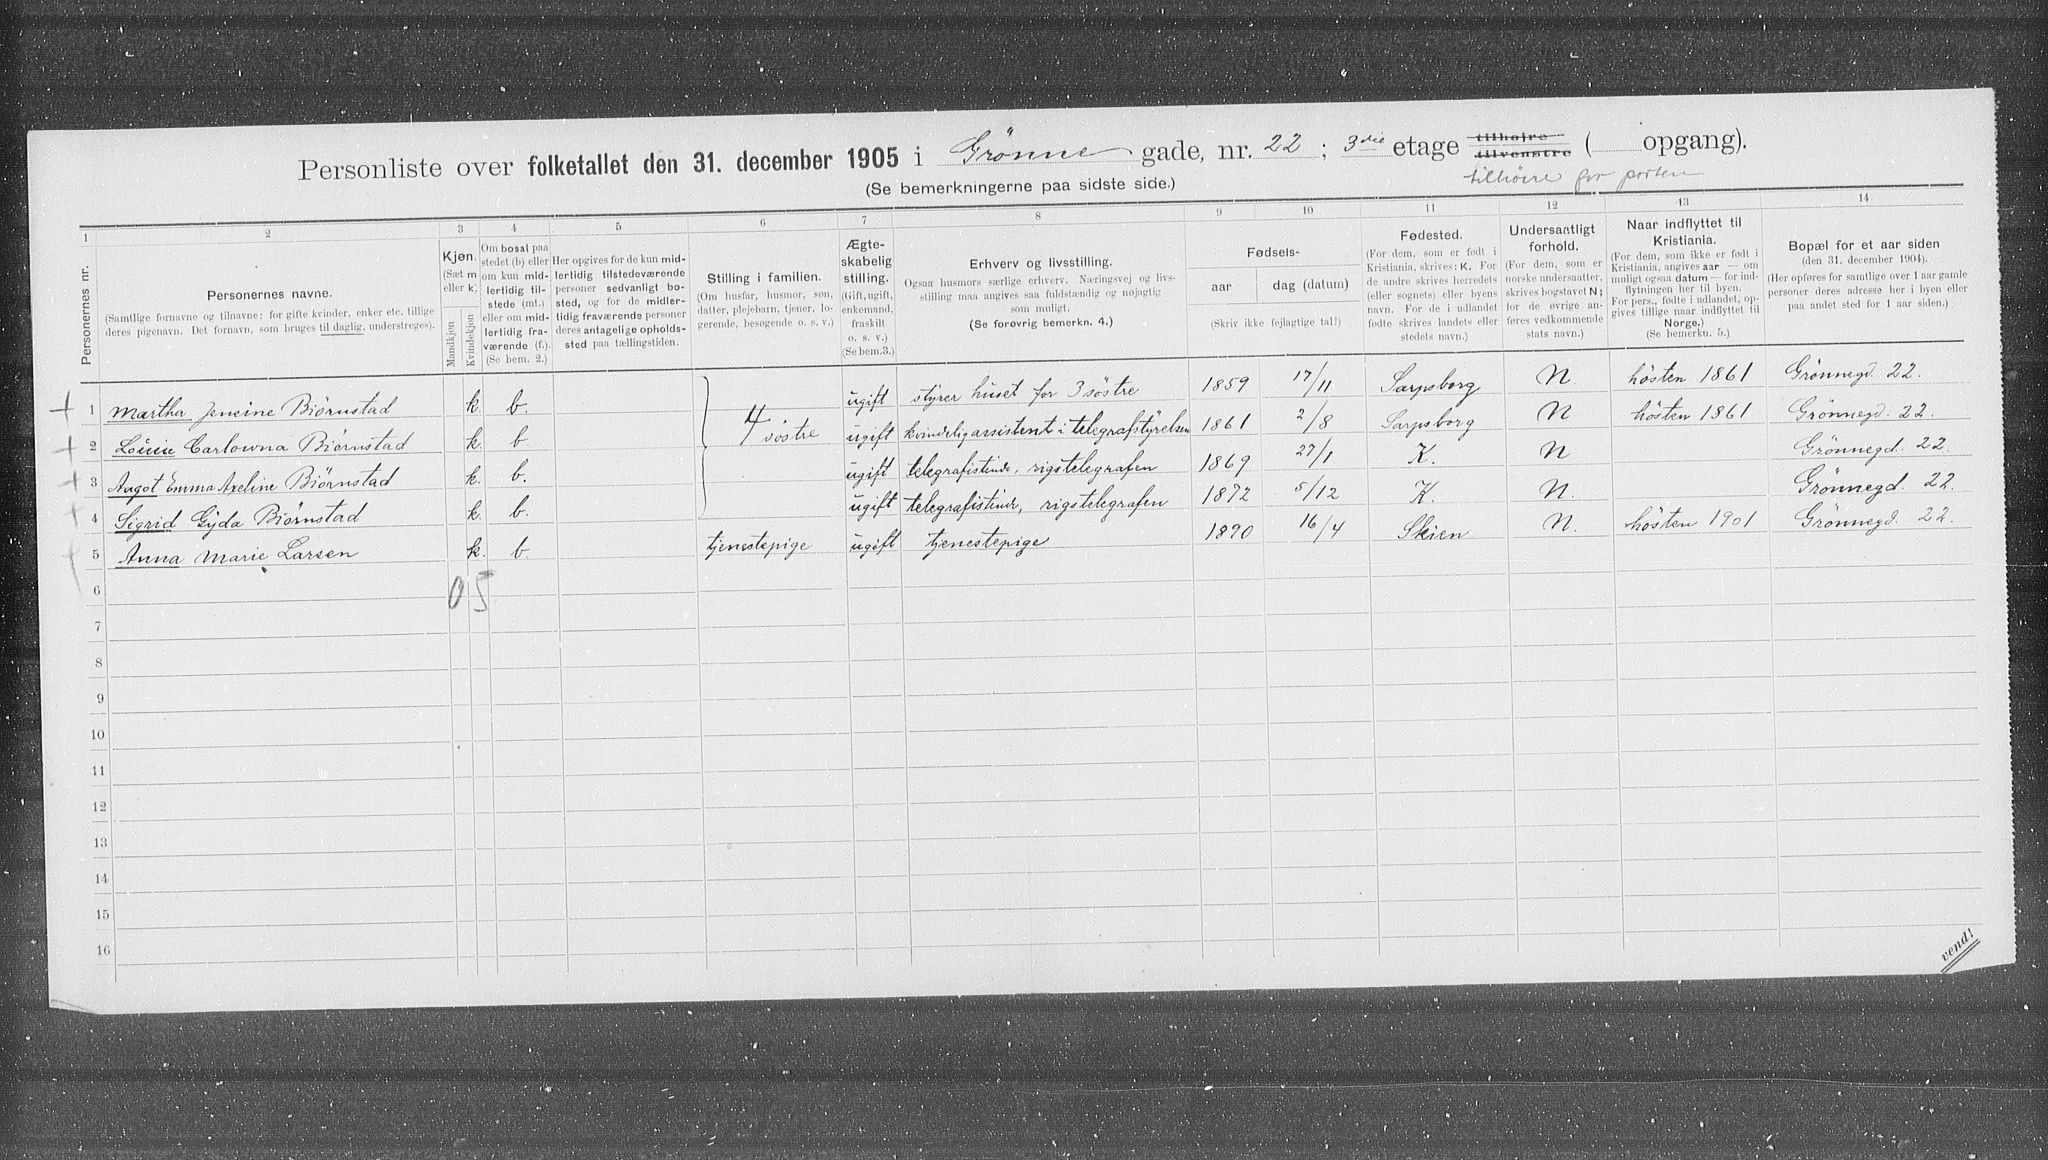 Personliste over folketallet den 31. december 1905 i Grönne gade, nr. 22 ; 3die etage tilhøire tilvenstre ( opgang).
(Se bemerkningerne paa sidste side.)
tilhöire for porten
1 2 3 4 5 6 7 8 9 10 11 12 13 14
Personernes nr.
Personernes navne.
(Samtlige fornavne og tilnavne; for gifte kvinder, enker etc. tillige
deres pigenavn. Det fornavn, som bruges til daglig, understreges).
Kjøn.
(Sæt m
eller k)
Mandkjøn
Kvindekjøn
Om bosat paa
stedet (b) eller
om kun mid-
lertidig til-
stede (mt.)
eller om mid-
lertidig fra-
værende (f.).
(Se bem. 2.)
Her opgives for de kun mid-
lertidig tilstedeværende
personer sedvanligt bo-
sted, og for de midler-
tidig fraværende personer
deres antagelige opholds-
sted paa tællingstiden.
Stilling i familien.
(Om husfar, husmor, søn,
datter, plejebarn, tjener, lo-
gerende, besøgende o. s. v.)
Ægte-
skabelig
stilling.
(Gift, ugift,
enkemand,
fraskilt
o. s. v.)
(Se bem. 3.)
Erhverv og livsstilling.
Ogsaa husmors særlige erhverv. Næringsvej og livs-
stilling maa angives saa fuldstændig og nøjagtig
som muligt.
(Se forøvrig bemerkn. 4.)
Fødsels-
aar
dag (datum)
(Skriv ikke fejlagtige tal!)
Fødested.
(For dem, som er født i
Kristiania, skrives: K. For
de andre skrives herredets
(eller sognets) eller byens
navn. For de i udlandet
fødte skrives landets eller
stedets navn.)
Undersaatligt
forhold.
(For dem, som er
norske undersaatter,
skrives bogstavet N;
for de øvrige an-
føres vedkommende
stats navn.)
Naar indflyttet til
Kristiania.
(For dem, som ikke er født i
Kristiania, angives aar — om
muligt ogsaa datum — for ind-
flytningen her til byen.
For pers., fødte i udlandet, op-
gives tillige naar indflyttet til
Norge.)
(Se bemerkn. 5.)
Bopæl for et aar siden
(den 31. december 1904).
(Her opføres for samtlige over 1 aar gamle
personer deres adresse her i byen eller
paa andet sted for 1 aar siden.)
1 Martha Jensine Biörnstad k. b. ugift styrer huset for 3 söstre 1859 17/11 Sarpsborg N hösten 1861 Grönnegd. 22.
4 söstre
2 Louise Carlowna Biörnstad k. b. ugift kvindelig assistent i telegrafstyrelsen 1861 2/8 Sarpsborg N hösten 1861 Grönnegd. 22.
3 Aagot Emma Axeline Biörnstad k. b. ugift telegrafistinde, rigstelegrafen 1869 27/1 K. N Grönnegd. 22.
4 Sigrid Gyda Biörnstad k. b. ugift telegrafistinde, rigstelegrafen 1872 5/12 K. N. Grönnegd. 22.
5 Anna Marie Larsen k. b. tjenestepige ugift tjenestepige 1890 16/4 Skien N. hösten 1901 Grönnegd. 22.
6 0 5
7
8
9
10
11
12
13
14
15
16
vend!